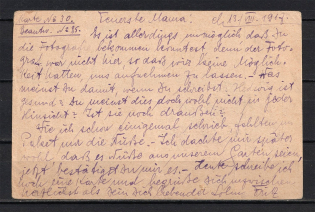 Karte № 630. Teuerste Mama! d. 13/VII. 1917.
beantw. № 35. Es ist allerdings unmöglich daß Du
die Fotografie bekommen konntest, denn der Foto-
graf war nicht hier so daß wir keine Möglich-
keit hatten, uns aufnehmen zu lassen. – Was
meinst Du damit, wenn Du schreibst, Herwig ist
gesund? Du meinst dies doch wohl nicht in jeder
Hinsicht? Ist sie noch draußen?
Wie ich schon einigemal schrieb, fehlten im
Paket nur die Nüsse. – Ich dachte mir später
wohl, daß es Nüsse aus unserem Garten seien,
jetzt bestätigst Du mir es. – heute schreibe ich
noch eine Karte und begrüße Dich inzwischen
als Dein Dich liebender Sohn